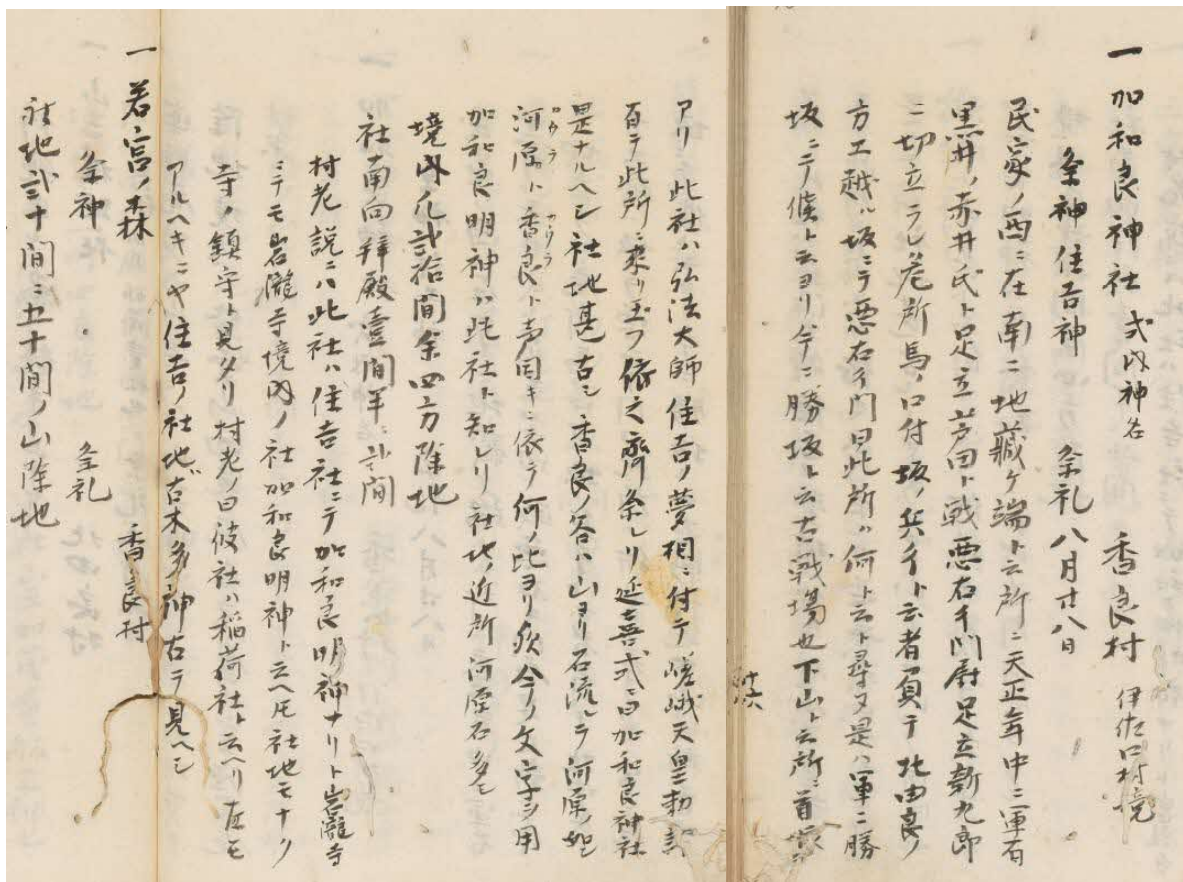 一加和良神社 式内神名 香良村 伊佐口村境
祭神住吉神 祭礼八月廿八日
民家ノ西ニ在南ニ地蔵ケ端ト云所ニ天正年中ニ軍有
黒井ノ赤井氏ト足立芦田ト戦悪右ヱ門尉足立新九郎
ニ切立ラレ其所馬ノ口付坂ノ兵ヱト云者負テ北由良ノ
方エ越ル坂ニテ悪右ヱ門曰此所ハ何ト云ト尋ヌ是ハ軍ニ勝
坂ニテ候ト云ヨリ今ニ勝坂ト云古戦場也下山ト云所ニ首塚
アリ 此社ハ弘法大師住吉ノ夢相ニ付テ嵯峨天皇勅
百テ此所ニ来リ玉フ依之斎祭レリ延喜式ニ曰加和良神社
是ナルヘシ社地甚古シ香良ノ谷ハ山ヨリ石流レテ河原ノ如
河原ト香良ト声同キニ依テ何ノ比ヨリ欤今ノ文字ヲ用
カワラ カウラ
加和良明神ハ此社ト知レリ社地ノ近所河原石多シ
境内凡弐拾間余四方除地
社南向拝殿壹間半ニ弐間
村老説ニハ此社ハ住吉社ニテ加和良明神ナリト岩瀧寺
ニテモ岩瀧寺境内ノ社加和良明神ト云ヘ𪜈社地モナク
寺ノ鎮守ト見タリ村老ノ曰彼社ハ稲荷社ト云ヘリ左モ
アルヘキニヤ住吉ノ社地古木多神古テ見ヘシ
一若宮ノ森 香良村
祭神 祭礼
社地弐十間ニ五十間ノ山除地